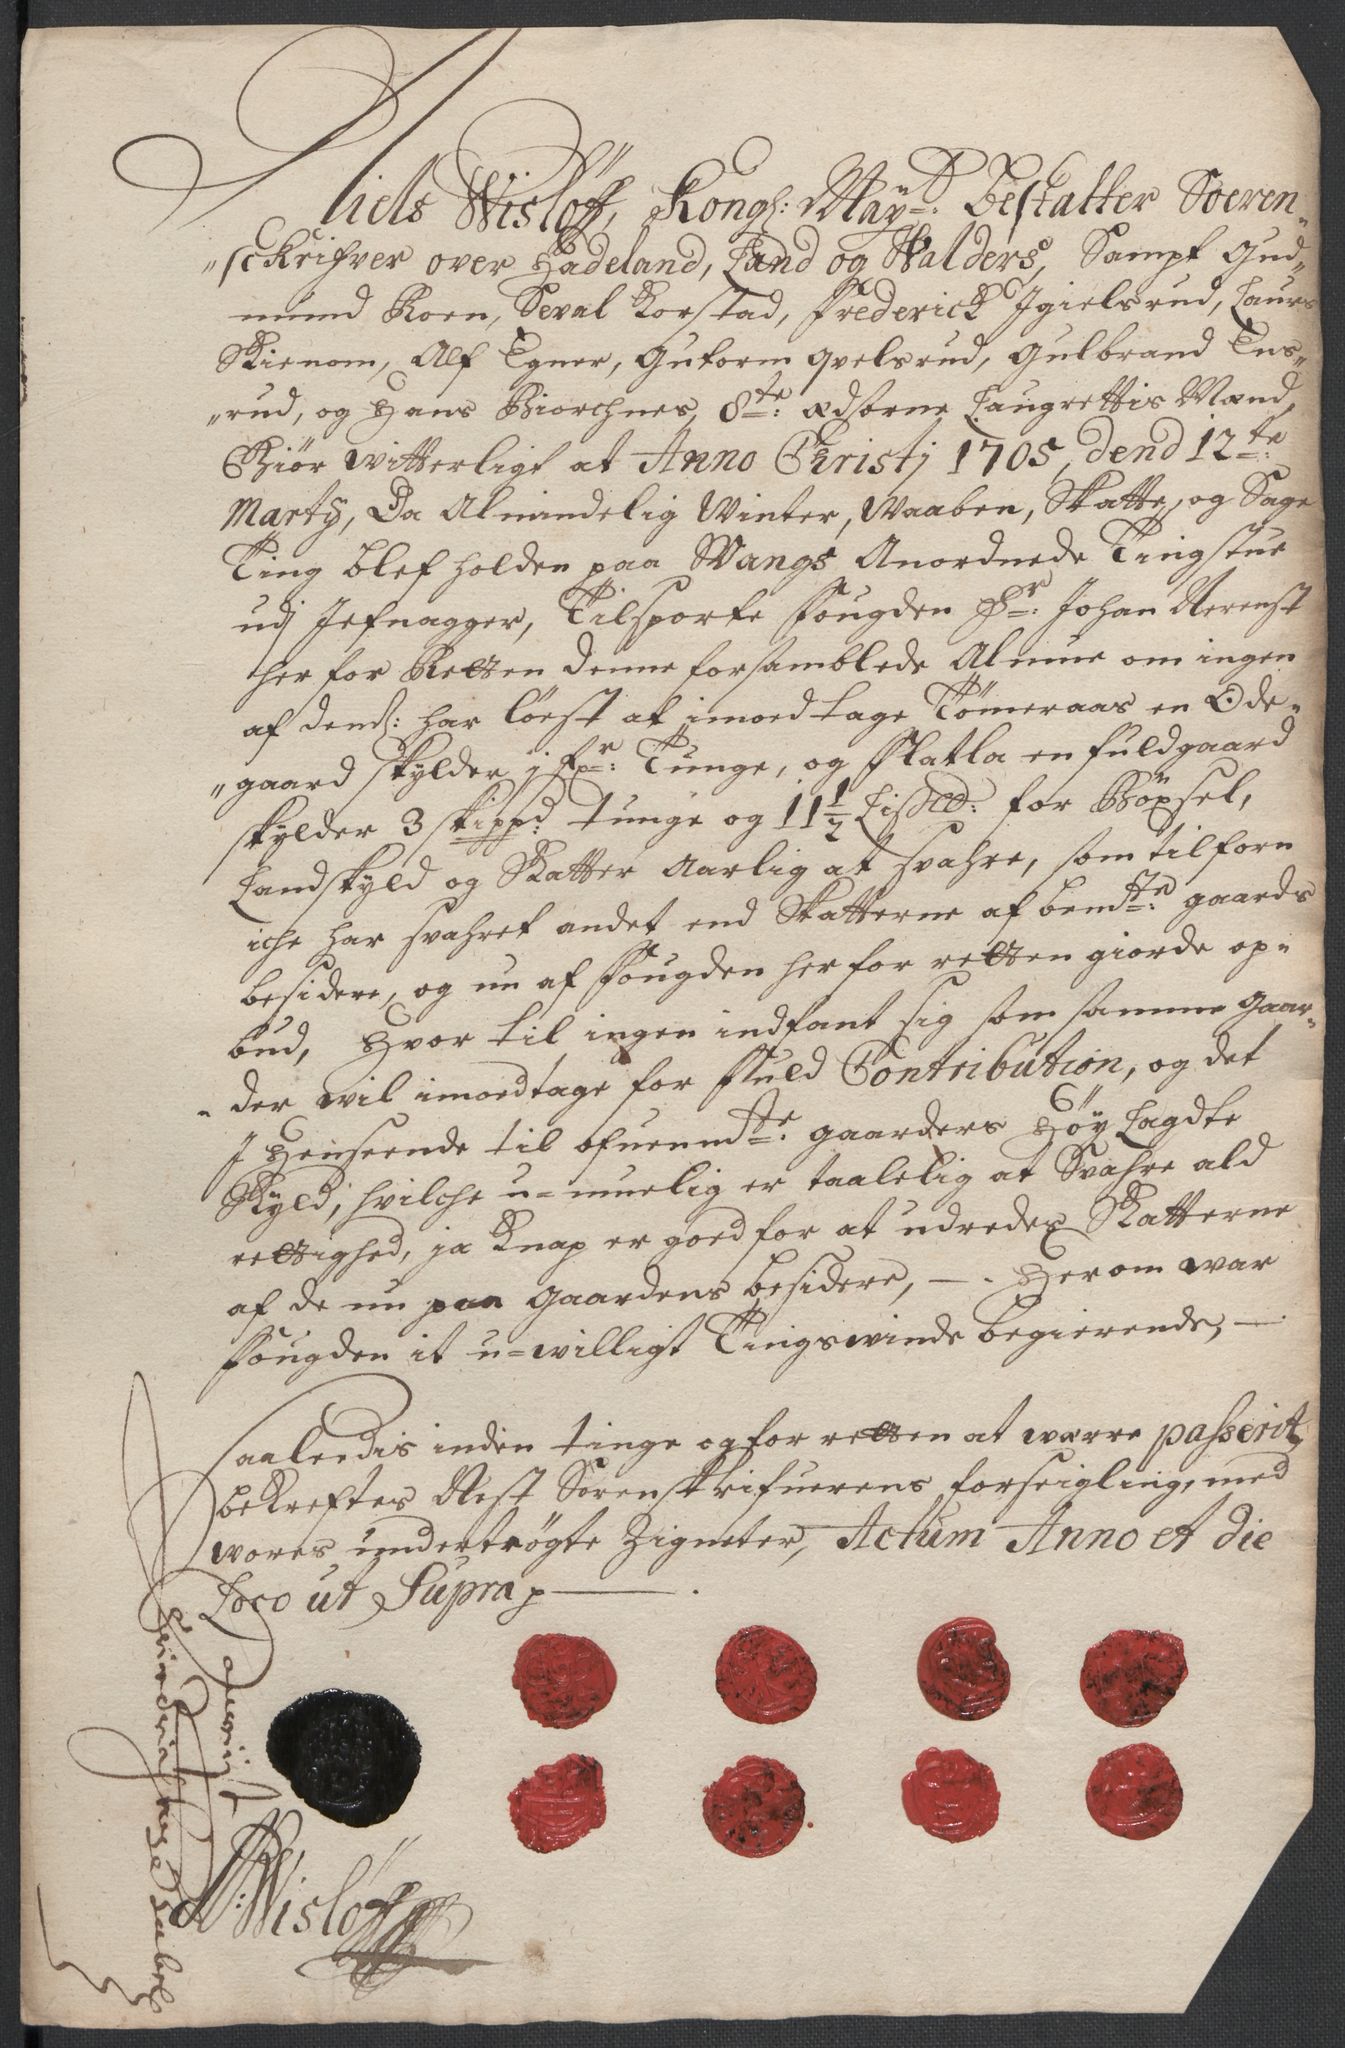 Niels Wisløff, Kongl: Maÿ: bestalter Soeren-
"schrifver over Hadeland, Land og Walders, Sampt Gud-
mund Roen, Seval Korstad, Frederick Igielsrud, Laurs
Skienom, Alf Egner, Guttorm Qvelsrud, Gulbrand Ens-
"rud, og Hans Biørchnes, 8te: edsorne Laugrettis Mænd,
Giør witterligt at Anno Christj 1705, dend 12te:
Martÿ, Da Almindelig Winter, Waaben, Skatte, og Sage
Ting blef holden paa Wangs Anordnede Tingstue
udj Jefnagger, Tilsporte Fougden Sr: Johan
her for Retten denne forsamblede Almue om ingen
af dend: har løst at imoedtage Tømeraas en Øde-
"gaard skylder j Fr: Tunge, og Flatla en fuldgaard
skylder 3 skippd: tunge og 11½ Lispd: for Böxsel,
Landskyld og Skatter Aarlig at svahre, som tilforn
iche har svahret andet end Skatterne af bemte: gaards
besidere, og nu af Fougden her for retten giorde op-
bud, Hvor til ingen indfant sig som samme gaar-
der wil imoedtage for Fuld Contribution, og det
J Henseende til ofuenmte: gaarders Høÿ Lagdte
Skyld, hvilche u-muelig er taalelig at Svahre ald
rettighed, ja knap er goed for at udreder Skatterne
af de nu paa gaardens besidere, —. Herom war
Fougden it u-willigt Tingswinde begierende, —
Saaledis inden tinge og for retten at wærre passerit,
bekrefter Nest Sorenskrifuerens forseigling, med
wores undertrögte Zigneter, Actum Anno et die
Loco ut Supra p —.
N: Wisløff